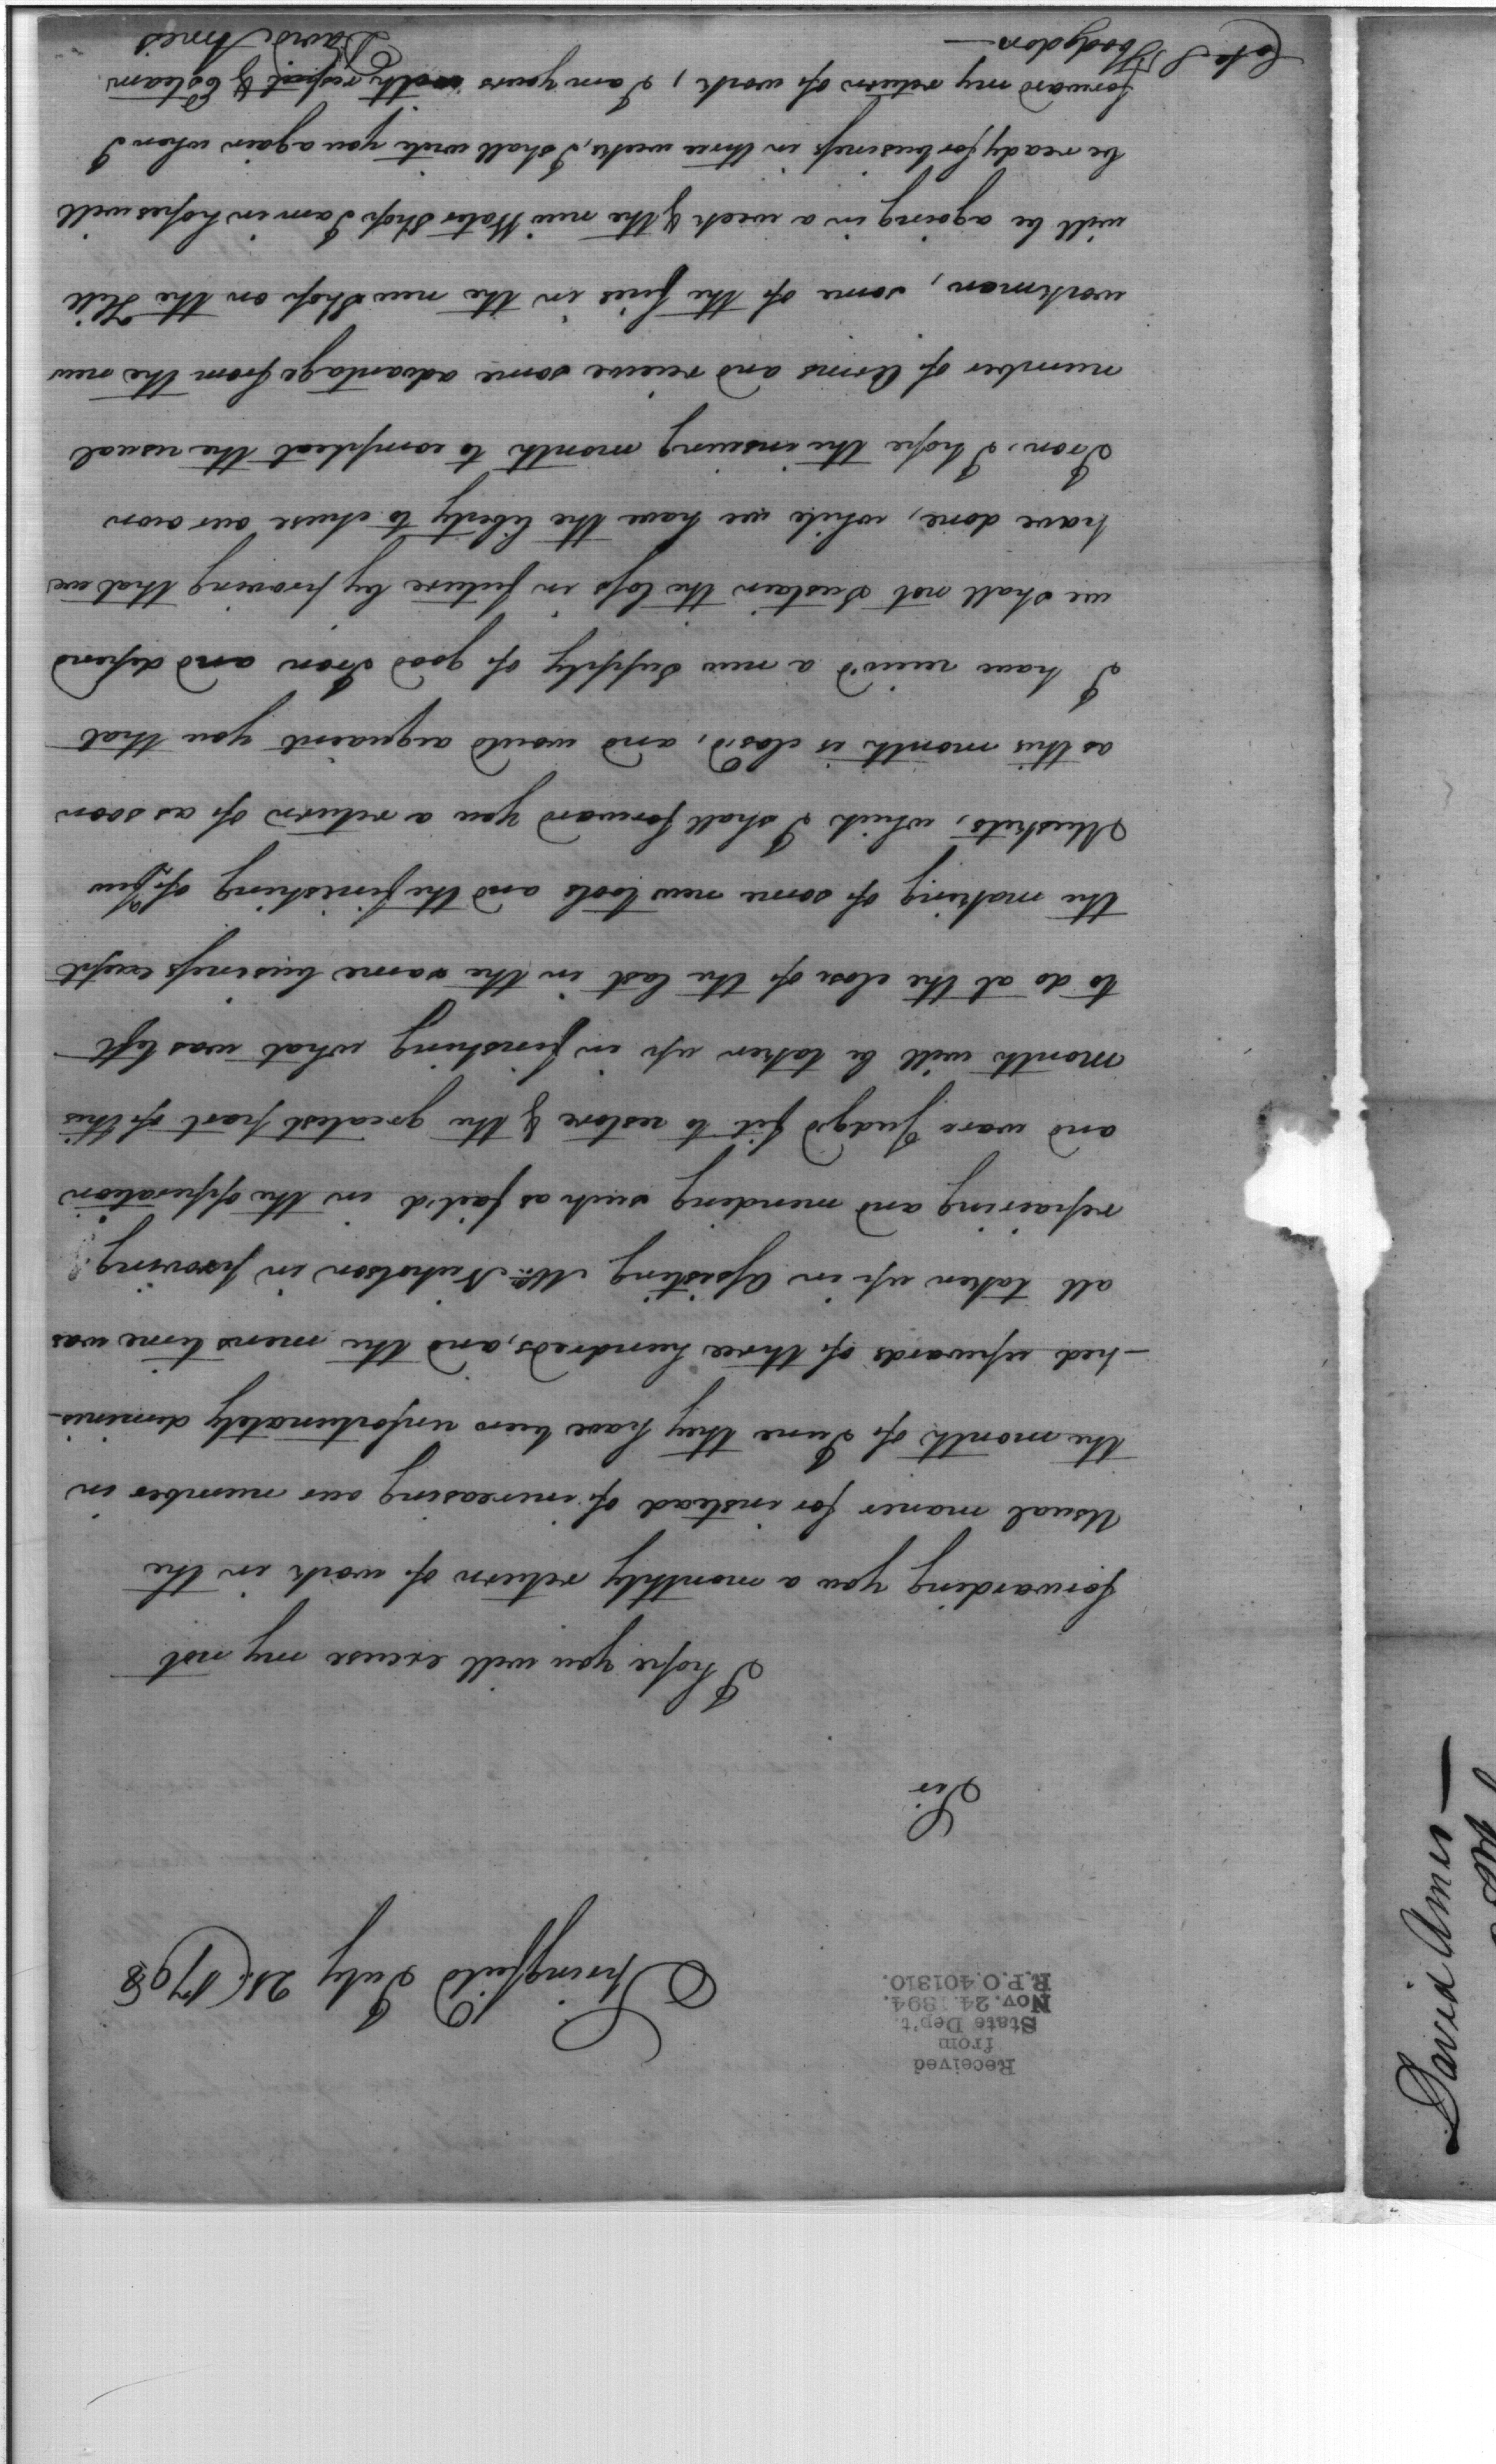 Received
from
State Dep't.
Nov. 24. 1894.
R.P.O. 401310.
Springfield July 21. 1798
Sir
I hope you will excuse my not
forwarding you a monthly return of work in the
Usual maner for instead of increasing our number in
the month of June they have been unfortunately deminis-
-hed upwards of three hundred, and the mens time was
all taken up in Assisting Mr. Nicholson in proving
repairing and mending such as fail'd in the opperation
and ware Judg'd fit to restore & the greatest part of this
month will be taken up in finishing what was left
to do at the close of the last in the same business except
the making of some new tools and the finishing of few
Muskets, which I shall forward you a return of as soon
as this month is closd, and would aquaint you that
I have reciev'd a new supply of good Iron and depend
we shall not Sustain the loss in future by proving that we
have done, while we have the liberty to chuse our own
Iron, I hope the insuing month to compleat the usual
number of Arms and recieve some advantage from the new
workmen, some of the fires in the new Shop on the Hill
will be agoing in a week & the new Water Shop I am in hopes will
be ready for business in three weeks, I shall write you again when I
forward my return of work, I am yours with respect & Esteam
David Ames
Hodgdon
David Ames